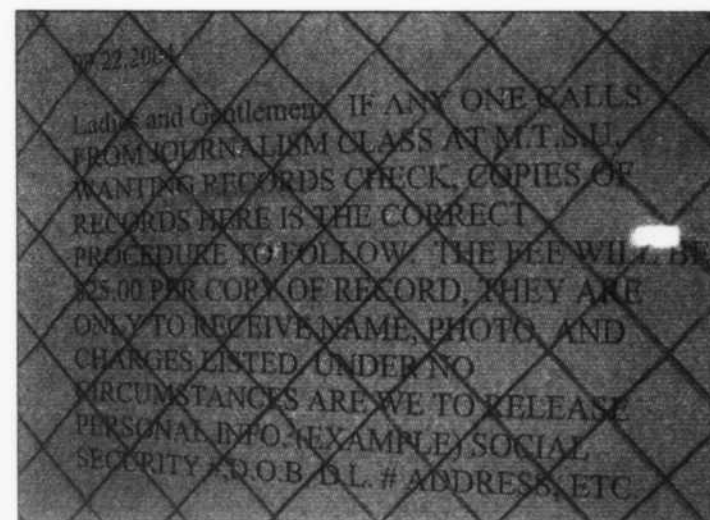 07.22.2004
Ladies and Gentlemen: IF ANY ONE CALLS
FROM JOURNALISM CLASS AT M.T.S.U.
WANTING RECORDS CHECK, COPIES OF
RECORDS HERE IS THE CORRECT
PROCEDURE TO FOLLOW. THE FEE WILL BE
$25.00 PER COPY OF RECORD, THEY ARE
ONLY TO RECEIVE NAME, PHOTO, AND
CHARGES LISTED. UNDER NO
CIRCUMSTANCES ARE WE TO RELEASE
PERSONAL INFO. (EXAMPLE) SOCIAL
SECURITY #, D.O.B, D.L. # ADDRESS, ETC.